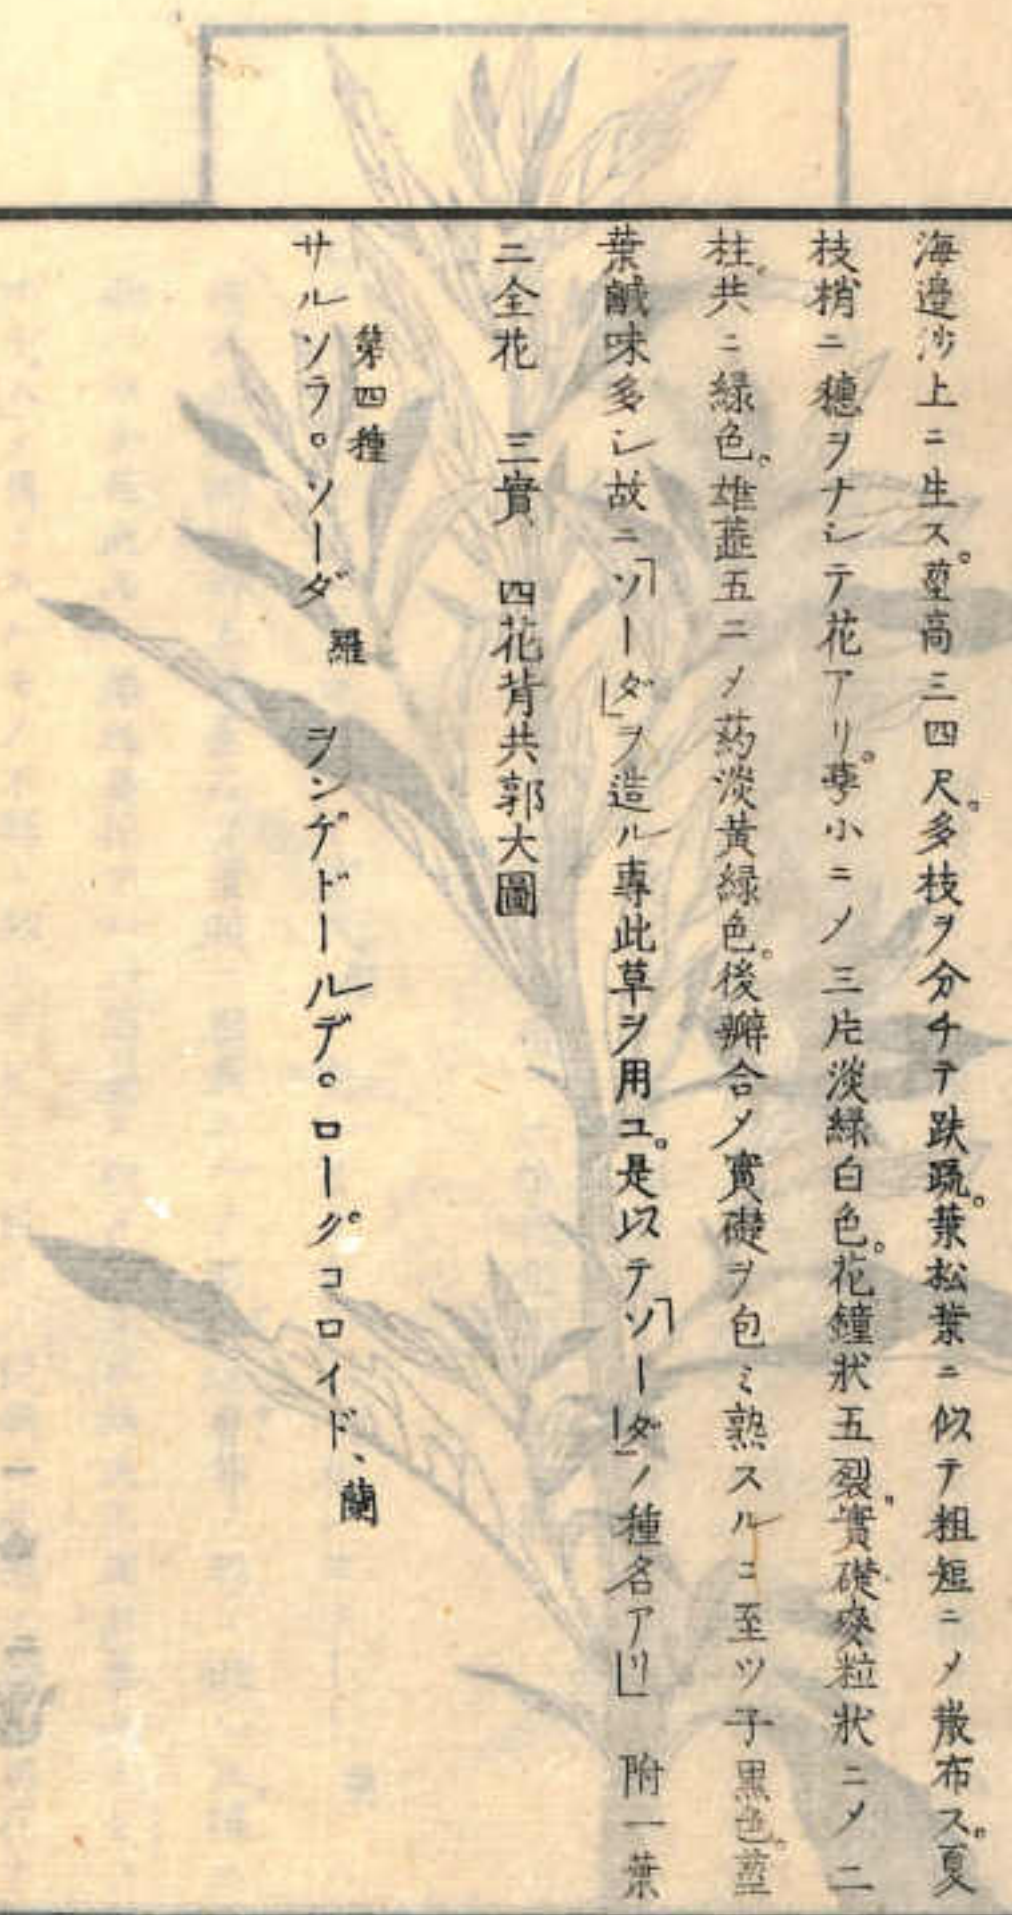 海邊沙上ニ生ス。莖高三四尺。多枝ヲ分チテ趺疏。葉松葉ニ似テ粗短ニノ散布ス。夏
枝梢ニ穗ヲナシテ花アリ。萼小ニノ三片淡緑白色。花鐘狀五裂。實礎麥粒狀ニノ二
柱。共ニ緑色。雄蕋五ニノ葯淡黄緑色。後瓣合ノ實礎ヲ包ミ熟スルニ至ツ子黒色。莖
葉鹹味多シ故ニ「ソーダ」ヲ造ル專此草ヲ用ユ。是以テ「ソーダ」ノ種名アリ」 附一葉
ニ全花 三實 四花背共郭大圖
第四種
サルソラ。ソーダ 羅 ヲンゲドールデ。ローグコロイド、蘭